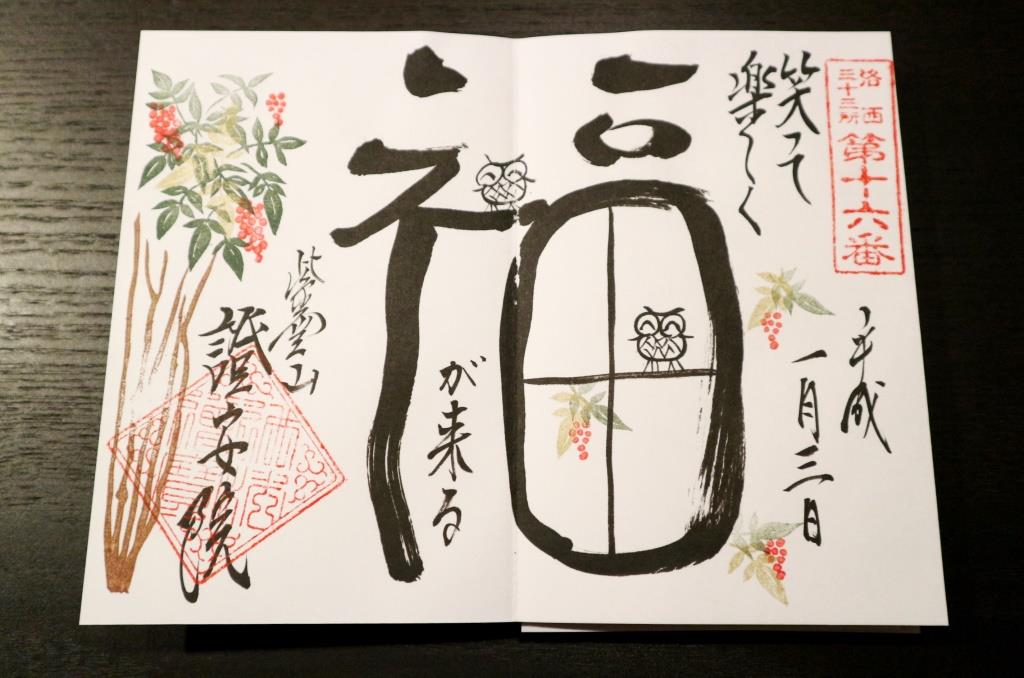 洛西
三十三所
第十六番
笑って
楽しく
福
が来る
平成
一月三日
安院